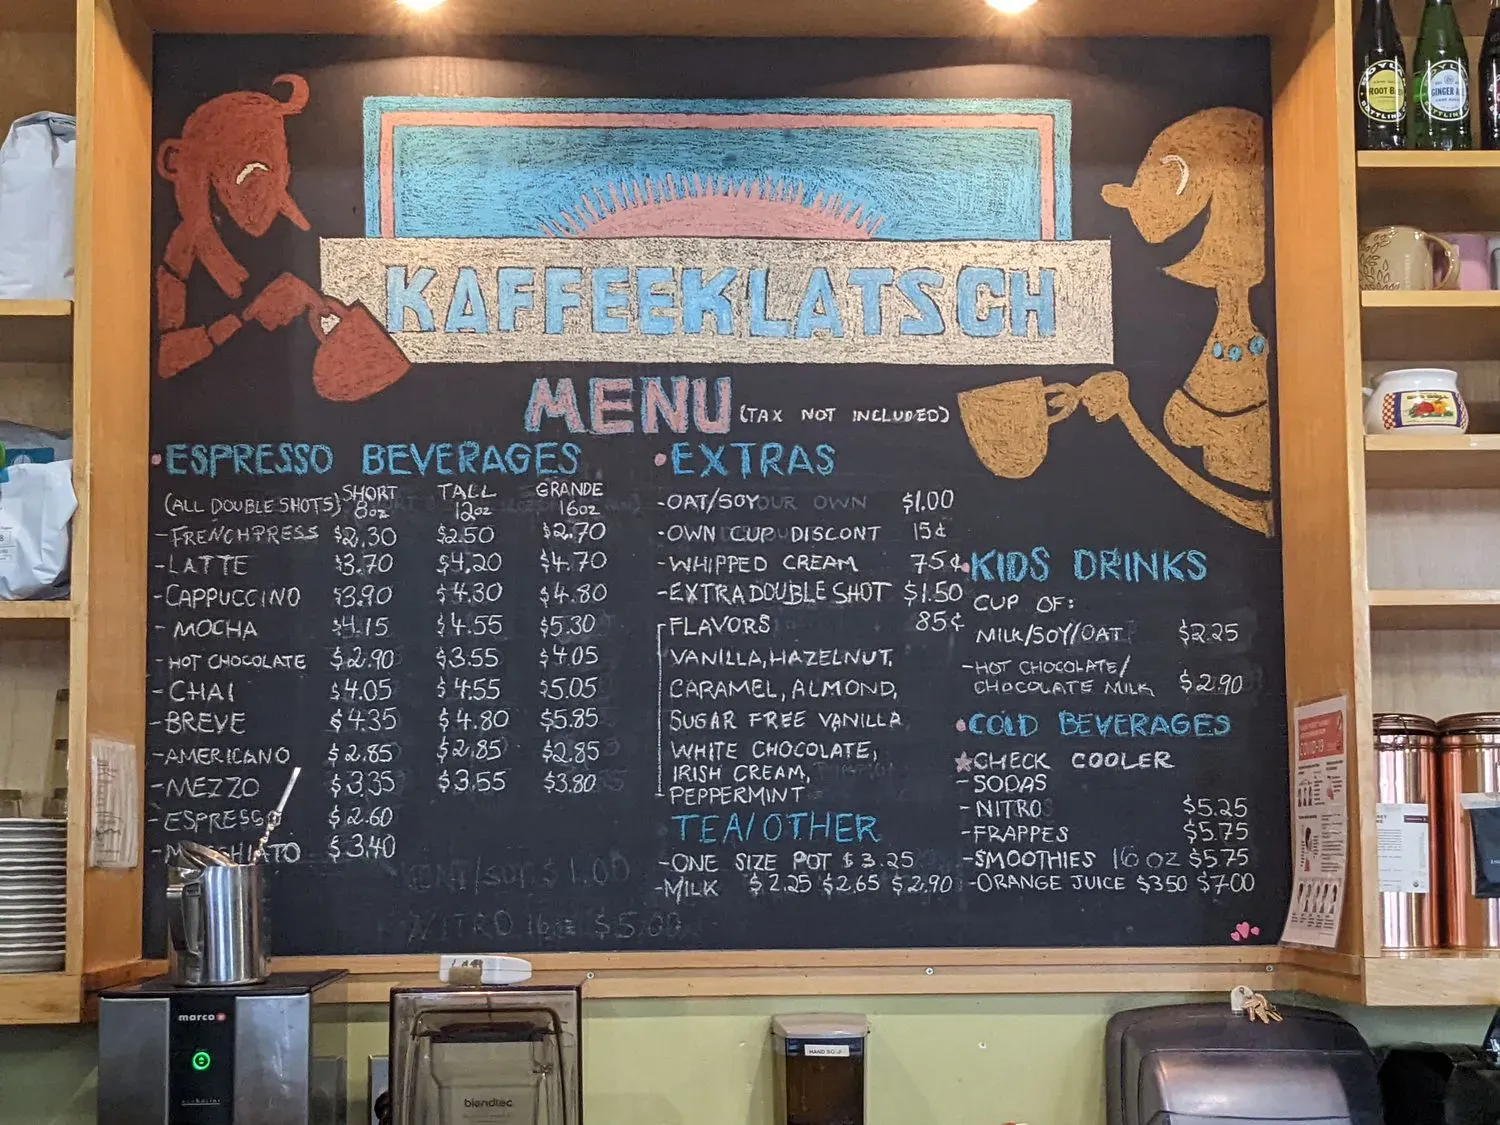 KAFFEEKLATSCH
MENU (TAX NOT INCLUDED)
• ESPRESSO BEVERAGES
(ALL DOUBLE SHOTS) SHORT 8oz TALL 12oz GRANDE 16oz
- FRENCH PRESS $2.30 $2.50 $2.70
- LATTE $3.70 $4.20 $4.70
- CAPPUCCINO $3.90 $4.30 $4.80
- MOCHA $4.15 $4.55 $5.30
- HOT CHOCOLATE $2.90 $3.55 $4.05
- CHAI $4.05 $4.55 $5.05
- BREVE $4.35 $4.80 $5.85
- AMERICANO $2.85 $2.85 $2.85
- MEZZO $3.35 $3.55 $3.80
- ESPRESSO $2.60
$3.40
OAT/SOY $1.00
NITRO 16oz $5.00
• EXTRAS
- OAT/SOY OUR OWN $1.00
- OWN CUP DISCONT 15¢
- WHIPPED CREAM 75¢
- EXTRA DOUBLE SHOT $1.50
FLAVORS 85¢
VANILLA, HAZELNUT,
CARAMEL, ALMOND,
SUGAR FREE VANILLA
WHITE CHOCOLATE,
IRISH CREAM,
PEPPERMINT
TEA/OTHER
- ONE SIZE POT $3.25
- MILK $2.25 $2.65 $2.90
• KIDS DRINKS
CUP OF:
MILK/SOY/OAT $2.25
- HOT CHOCOLATE/
CHOCOLATE MILK $2.90
• COLD BEVERAGES
CHECK COOLER
- SODAS
- NITRO $5.25
- FRAPPES $5.75
- SMOOTHIES 16 OZ $5.75
- ORANGE JUICE $3.50 $7.00
ROOT
BOTTLING
GINGER
BOTTLING
COVID-19
marco
blendtec
HAND